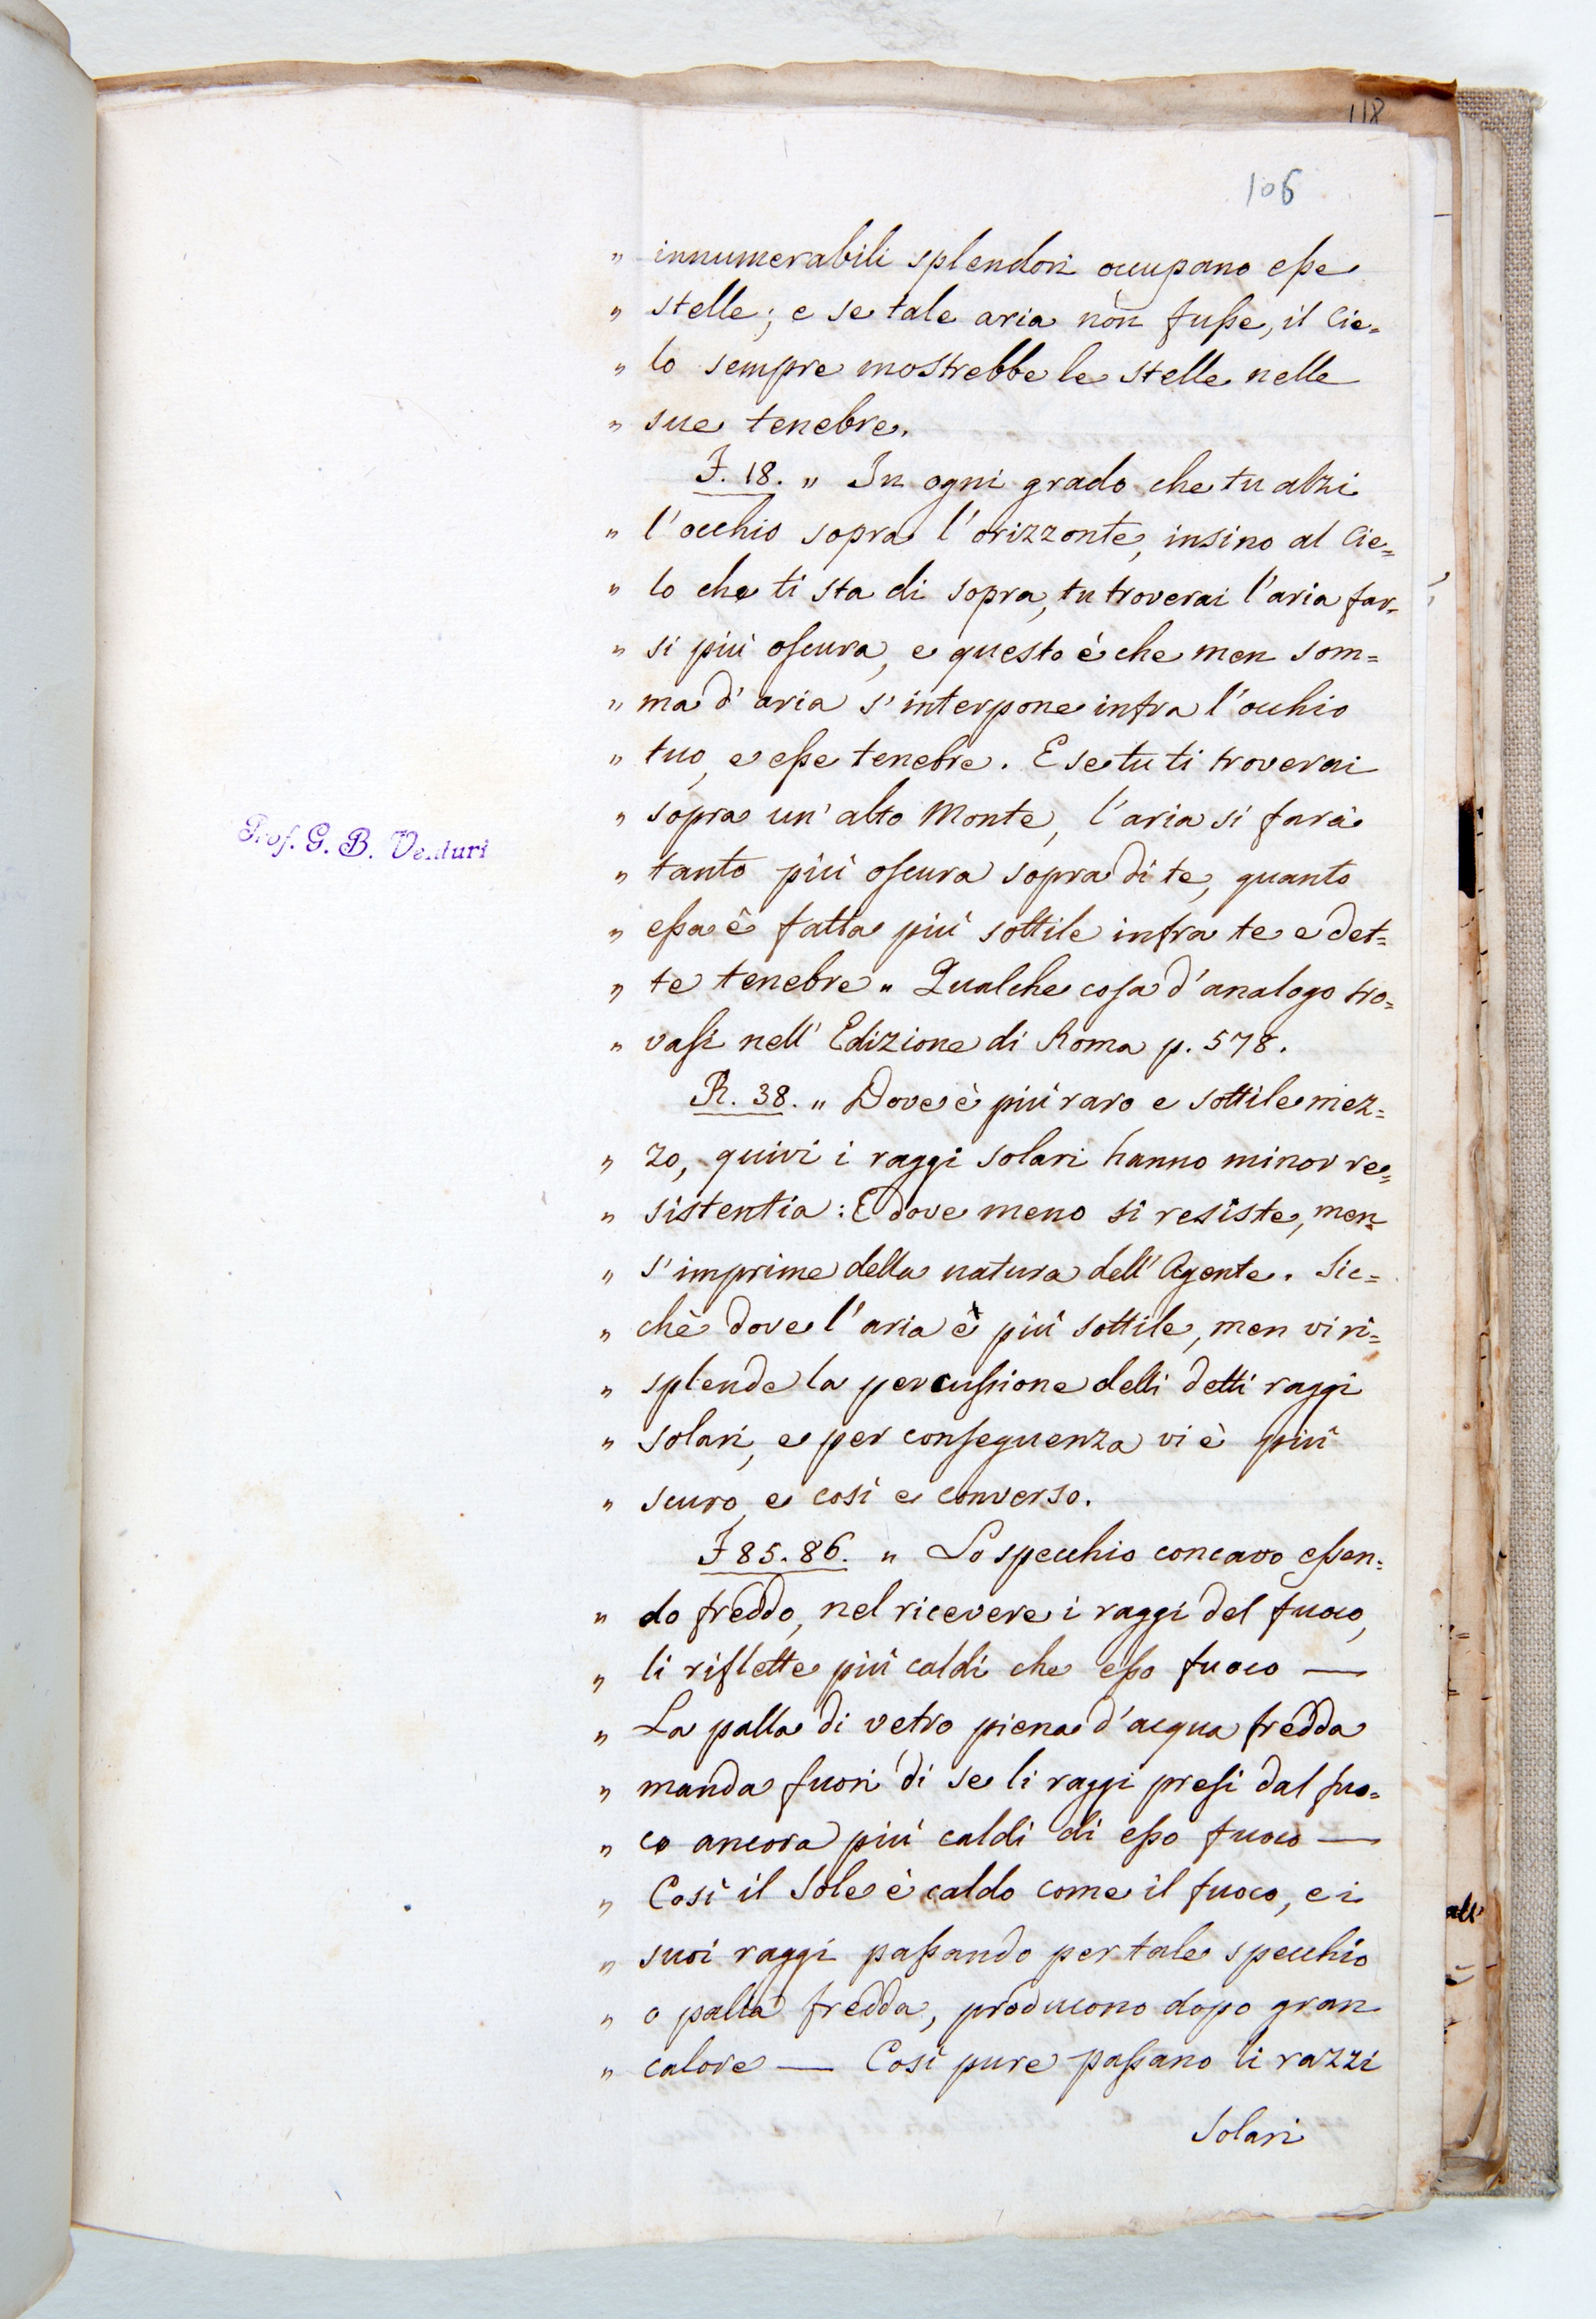 118
106
„ innumerabili splendori occupano eſse
„ stelle; e se tale aria non fuſse, il Cie=
„ lo sempre mostrebbe le stelle nelle
„ sue tenebre.
F. 18. „ In ogni grado che tu alzi
„ l'occhio sopra l'orizzonte, insino al Cie=
„ lo che ti sta di sopra, tu troverai l'aria far=
„ si più oſcura, e questo è che men som=
„ ma d'aria s'interpone infra l'occhio
„ tuo, e eſse tenebre. E se tu ti troverai
„ sopra un'alto Monte, l'aria si farà
„ tanto più oſcura sopra di te, quanto
„ eſsa è fatta più sottile infra te e det=
„ te tenebre „ Qualche coſa d'analogo tro=
„ vaſi nell'Edizione di Roma p. 578.
R. 38. „ Dove è più raro e sottile mez=
„ zo, quivi i raggi solari hanno minor re=
„ sistentia: E dove meno si resiste, men
„ s'imprime della natura dell'Agente. Sic=
„ chè dove l'aria è più sottile, men vi ri=
„ splende la percuſsione delli detti raggi
„ solari, e per conſeguenza vi è più
„ scuro, e così e converso.
F 85. 86. „ Lo specchio concavo eſsen=
„ do freddo, nel ricevere i raggi del fuoco,
„ li riflette più caldi che eſso fuoco —
„ La palla di vetro piena d'acqua fredda
„ manda fuori di se li raggi preſi dal fuo=
„ co ancora più caldi di eſso fuoco —
„ Così il Sole è caldo come il fuoco, e i
„ suoi raggi paſsando per tale specchio
„ o palla fredda, producono dopo gran
„ calore — Così pure paſsano li razzi
Solari
Prof. G. B. Venturi